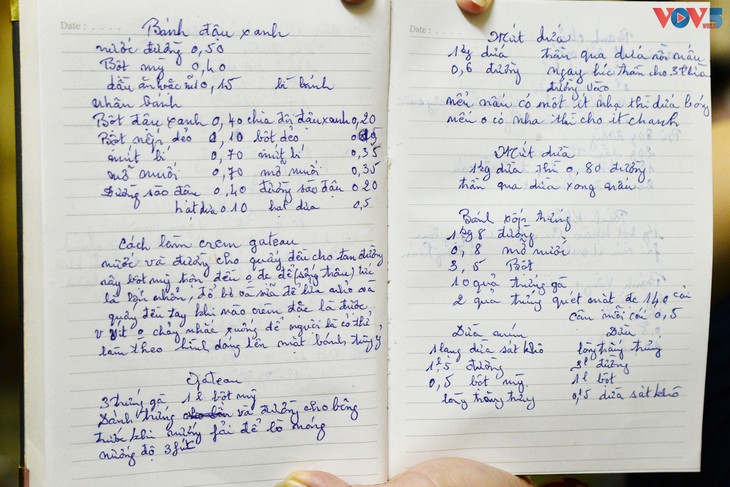 Date :
Bánh đậu xanh
nước đường 0,50
Bột mỳ 0,40
dầu ăn 0,15 bì bánh
nhân bánh
Bột đậu xanh 0,40 chia đôi đậu xanh 0,20
Bột nếp dẻo 0,10 bột dẻo
mút bí 0,70 mút bí 0,35
mỡ muối 0,70 mỡ muối 0,35
Đường sào đậu 0,40 đường sào đậu 0,20
hạt dưa 0,10 hạt dưa 0,5
Cách làm crem gateau
nước và đường cho quấy đều cho tan đường
này bột mỳ trộn đều
quấy đều tay khi nào crem đặc là được
nhấc xuống để nguội là có thể
làm theo hình dáng lên mặt bánh tùy ý
Gateau
3 trứng gà 1l bột mỳ
Đánh trứng và đường cho bông
trước khi nướng fải để lò nóng
nướng độ 3 fút
VOV5
Date :
Mứt dừa
1kg dừa trần qua dừa rồi nấu
0,6 đường ngay lúc trần cho
đường vào
nếu nấu có một ít nha thì dừa bóng
nếu o có nha thì cho ít chanh
Mứt dừa
1kg dừa thì 0,80 đường
trần qua dừa xong nấu
Bánh xốp trứng
1kg8 đường
0,8 mỡ nước
3,5 Bột
10 quả trứng gà
2 qua trứng quét mặt de 140 cái
cân mỗi cái 0,5
Dừa Dừa
1 lạng dừa sát khô lòng trắng trứng
1l5 đường 3l đường
0,5 bột mỳ 1l bột
lòng trắng trứng 0,5 dừa sát khô